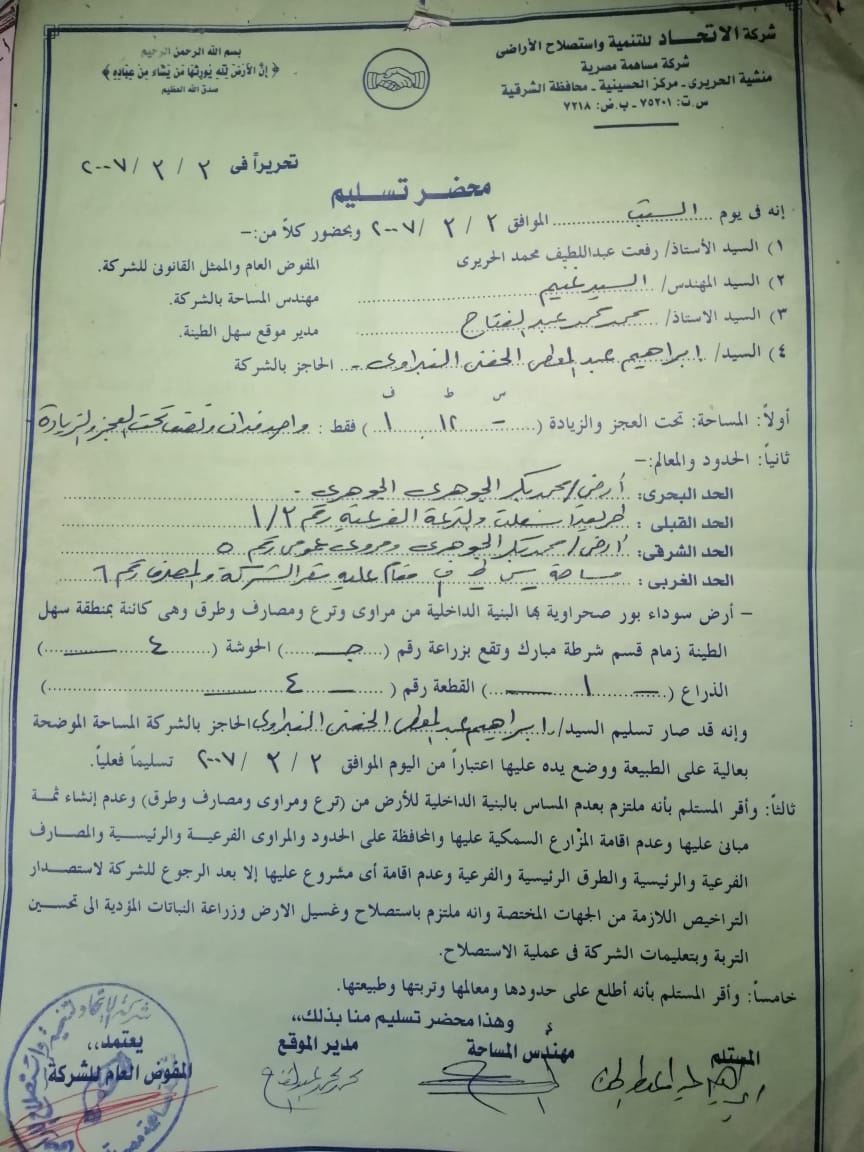 شركة الاتحاد للتنمية واستصلاح الأراضى
شركة مساهمة مصرية
منشية الحريرى - مركز الحسينية - محافظة الشرقية
س.ت: ٧٥٢٠١ - ب.ض: ٧٢١٨
بسم الله الرحمن الرحيم
﴿ إنَّ الأَرْضَ لِلَّهِ يُورِثُهَا مَن يَشَاءُ مِنْ عِبَادِهِ ﴾
صدق الله العظيم
تحريراً فى ٢ / ٢ / ٢٠٠٧
محضر تسليم
إنه فى يوم السبت الموافق ٢ / ٢ / ٢٠٠٧ وبحضور كلاً من:-
١) السيد الأستاذ/ رفعت عبداللطيف محمد الحريرى المفوض العام والممثل القانونى للشركة.
٢) السيد المهندس/ السيد غنيم مهندس المساحة بالشركة.
٣) السيد الاستاذ/ محمد محمد عبد الفتاح مدير موقع سهل الطينة.
٤) السيد/ ابراهيم عبد المعطى الحفنى النبراوى - الحاجز بالشركة
س ط ف
أولاً: المساحة: تحت العجز والزيادة ( - ١٢ ١ ) فقط : واحد فدان ونصف تحت العجز والزيادة
ثانياً: الحدود والمعالم:-
الحد البحرى: أرض/ محمد بكر الجوهرى الجوهرى -
الحد القبلى : طريق أسفلت والترعة الفرعية رقم ١/٢
الحد الشرقى: أرض/ محمد بكر الجوهرى ومروى عمومى رقم ٥
الحد الغربى : مساحة س ط ف مقام عليه مقر الشركة والمصرف رقم ٦
- أرض سوداء بور صحراوية بها البنية الداخلية من مراوى وترع ومصارف وطرق وهى كائنة بمنطقة سهل
الطينة زمام قسم شرطة مبارك وتقع بزراعة رقم ( جـ ) الحوشة ( ٤ )
الذراع ( ١ ) القطعة رقم ( ٤ )
وإنه قد صار تسليم السيد/ ابراهيم عبد المعطى الحفنى النبراوى الحاجز بالشركة المساحة الموضحة
بعالية على الطبيعة ووضع يده عليها اعتباراً من اليوم الموافق ٢ / ٢ / ٢٠٠٧ تسليماً فعلياً.
ثالثاً: وأقر المستلم بأنه ملتزم بعدم المساس بالبنية الداخلية للأرض من (ترع ومراوى ومصارف وطرق) وعدم إنشاء ثمة
مبانى عليها وعدم اقامة المزارع السمكية عليها والمحافظة على الحدود والمراوى الفرعية والرئيسية والمصارف
الفرعية والرئيسية والطرق الرئيسية والفرعية وعدم اقامة أى مشروع عليها إلا بعد الرجوع للشركة لاستصدار
التراخيص اللازمة من الجهات المختصة وانه ملتزم باستصلاح وغسيل الارض وزراعة النباتات المؤدية الى تحسين
التربة وبتعليمات الشركة فى عملية الاستصلاح.
خامساً: وأقر المستلم بأنه أطلع على حدودها ومعالمها وتربتها وطبيعتها.
وهذا محضر تسليم منا بذلك،،
المستلم مهندس المساحة مدير الموقع يعتمد،،
المفوض العام للشركة
ابراهيم عبد المعطى الحفنى
محمد محمد عبد الفتاح